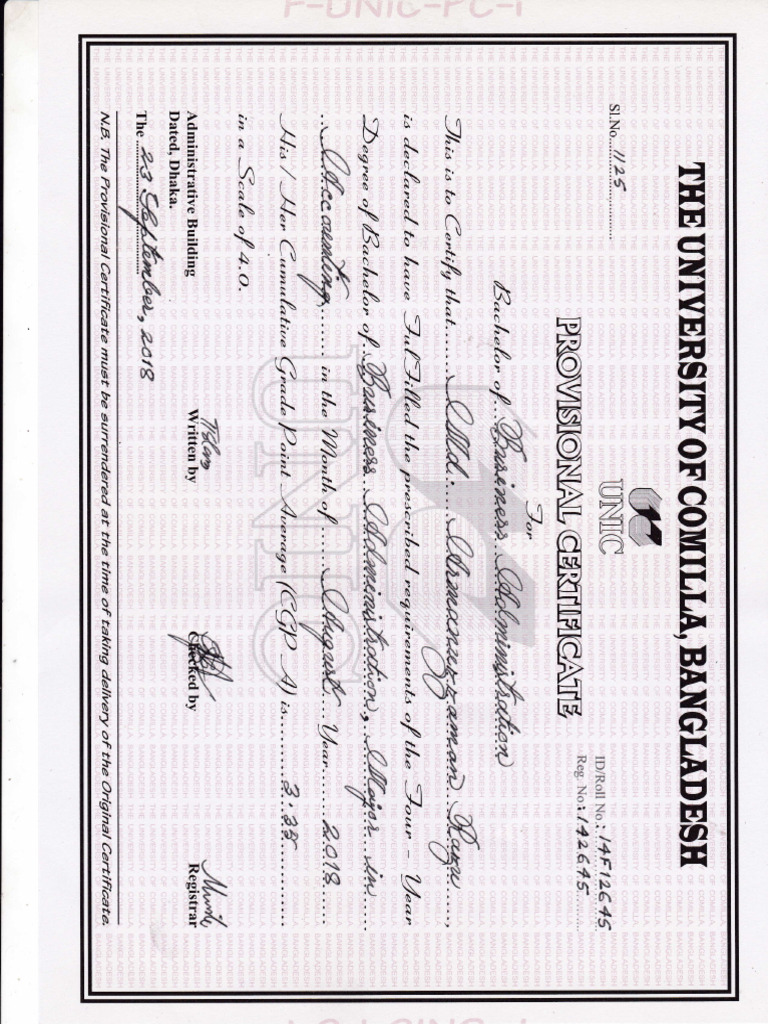 THE UNIVERSITY OF COMILLA, BANGLADESH
UNIC
Sl.No....1125
ID/Roll No.: 14F12645
Reg. No.: 142645
PROVISIONAL CERTIFICATE
For
Bachelor of...Business Administration
This is to Certify that......Md. Armanuzzaman Razu......,
is declared to have FulFilled the prescribed requirements of the Four - Year
Degree of Bachelor of..Business Administration, Major in.....
..Accounting....... in the Month of ......August....Year........2018......
His / Her Cumulative Grade Point Average (CGPA) is...........3.35...............
in a Scale of 4.0.
Administrative Building
Dated, Dhaka.
The ....23 September, 2018
Written by
Checked by
Registrar
N.B. The Provisional Certificate must be surrendered at the time of taking delivery of the Original Certificate.